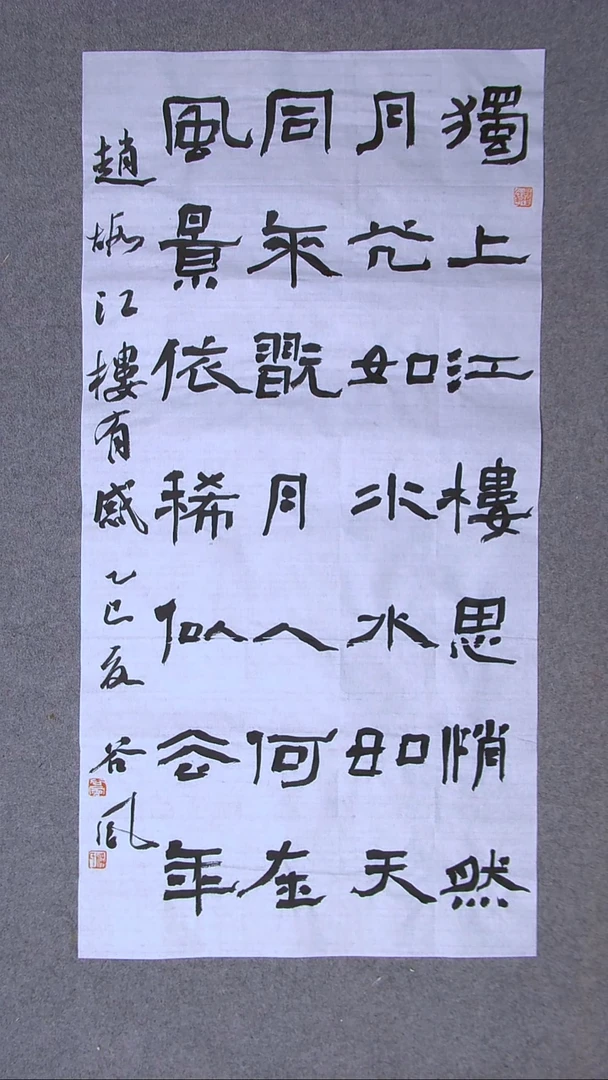 獨上江樓思悄然
月光如水水如天
同來翫月人何在
風景依稀似去年
趙嘏江樓有感 乙巳夏 谷風